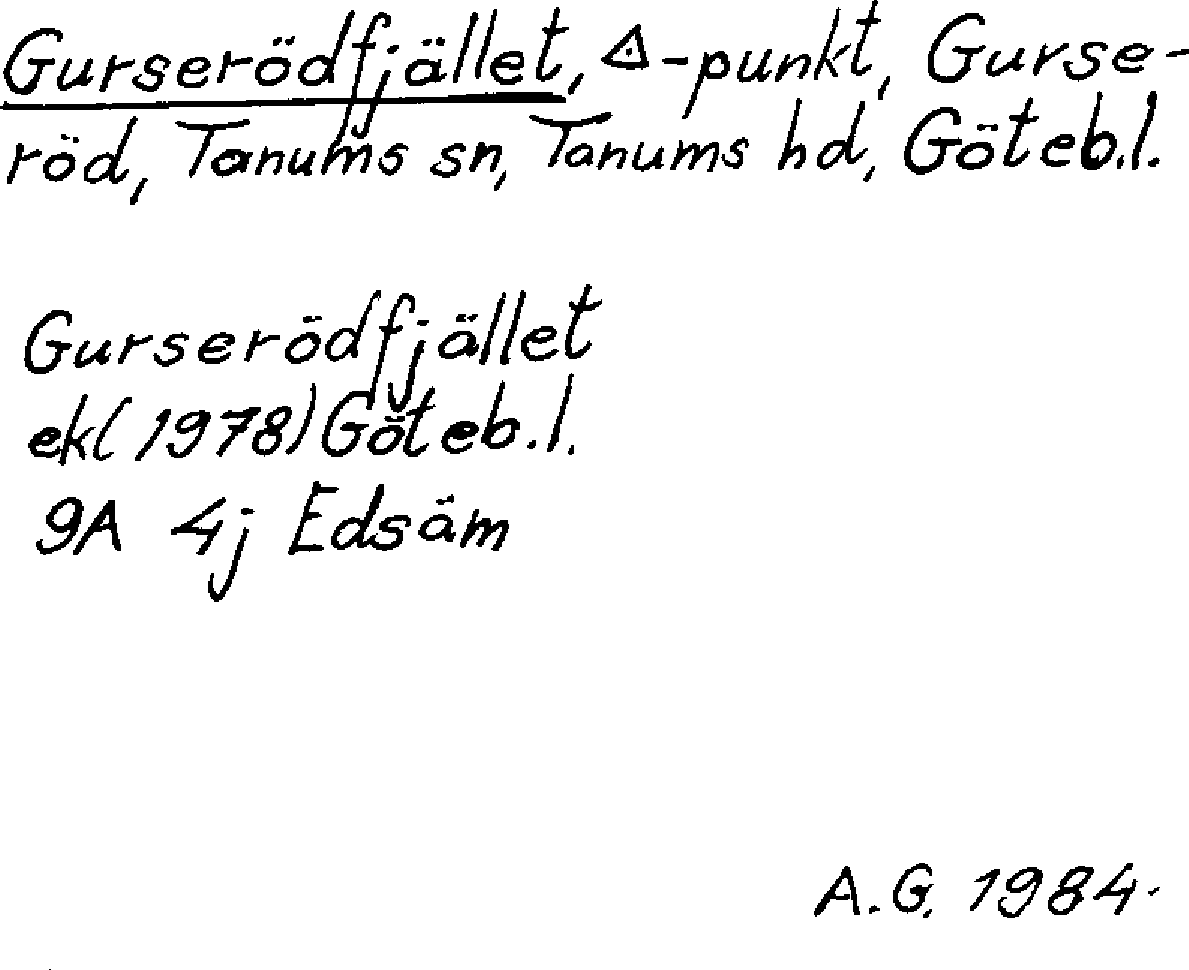 Gurserödfjället, ◬-punkt, Gurse-
röd, Tanums sn, Tanums hd, Göteb.l.
Gurserödfjället
ek(1978)Göteb.l.
9A 4j Edsäm
A.G. 1984.